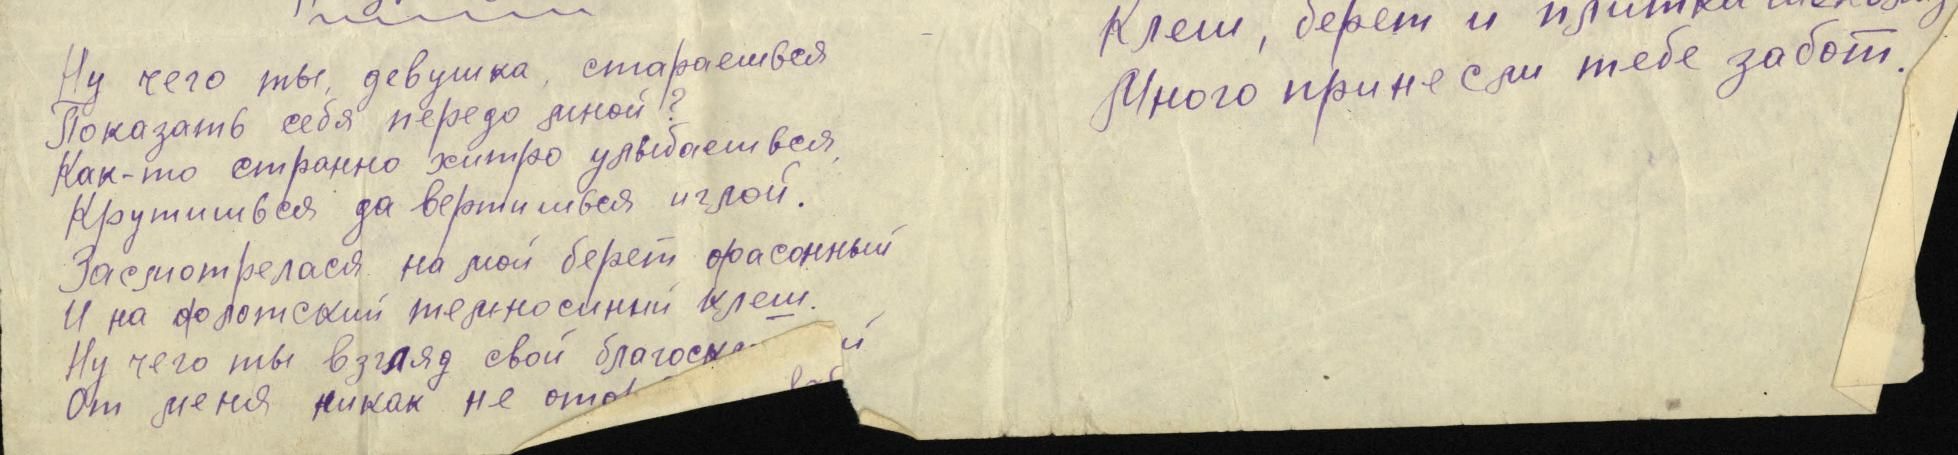 Ну чего ты, девушка, стараешься
Показать себя передо мной?
Как-то странно хитро улыбаешься,
Крутишься да вертишься иглой.
Засмотрелася на мой берет фасонный
И на флотский темносиний клеш.
Ну чего ты взгляд свой
От меня никак не
Клеш, берет и плитка
Много принесли тебе забот.